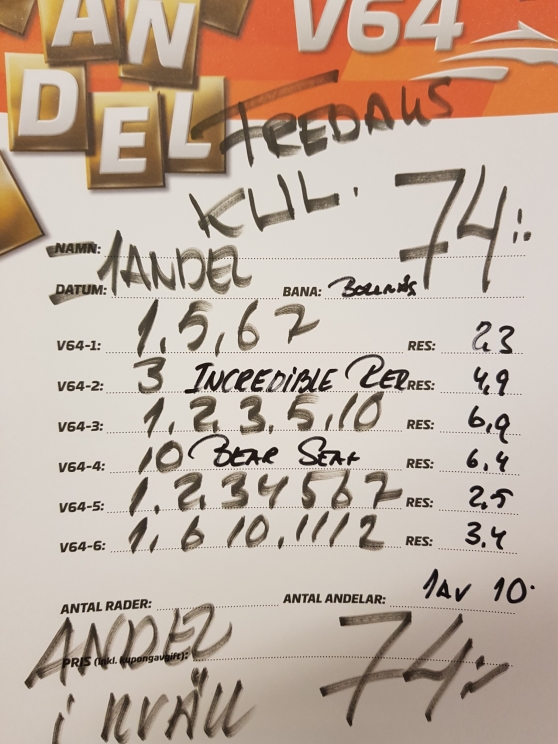 AN
DEL
V64
FREDAGS
KUL. 74:-
NAMN:
1 ANDEL
DATUM: BANA: BOLLNÄS
V64-1: 1, 5, 6 7 RES: 2,3
V64-2: 3 INCREDIBLE PER RES: 4,9
V64-3: 1, 2, 3, 5, 10 RES: 6,9
V64-4: 10 BEAR SEAF RES: 6,4
V64-5: 1, 2, 3 4 5 6 7 RES: 2,5
V64-6: 1, 6 10, 11 12 RES: 3,4
ANTAL RADER: ANTAL ANDELAR: 1 AV 10.
ANDEL
PRIS (inkl. kupongavgift): 74:-
i KVÄLL